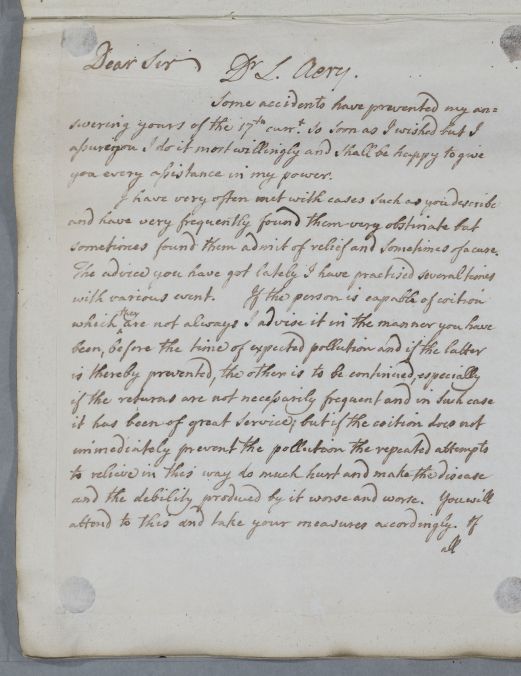 Dear Sir Dr. L. Aery.
Some accidents have prevented my an=
swering yours of the 17th currt. so soon as I wished but I
assure you I do it most willingly and shall be happy to give
you every assistance in my power.
I have very often met with cases such as you describe
and have very frequently found them very obstinate but
sometimes found them admit of relief and sometimes of a cure.
The advice you have got lately I have practised several times
with various event. If the person is capable of coition
which they are not always I advise it in the manner you have
been, before the time of expected pollution and if the latter
is thereby prevented, the other is to be continued, especially
if the returns are not necessarily frequent and in such case
it has been of great service, but if the coition does not
immediately prevent the pollution the repeated attempts
to relieve in this way do much hurt and make the disease
and the debility produced by it worse and worse. You will
attend to this and take your measures accordingly. If
all